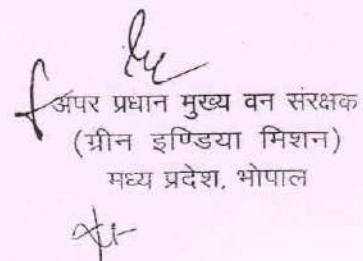 अपर प्रधान मुख्य वन संरक्षक
(ग्रीन इण्डिया मिशन)
मध्य प्रदेश, भोपाल